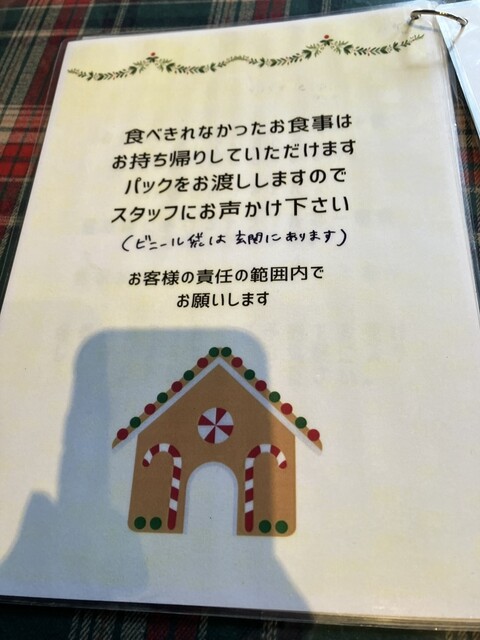 食べきれなかったお食事は
お持ち帰りしていただけます
パックをお渡ししますので
スタッフにお声かけ下さい
(ビニール袋は玄関にあります)
お客様の責任の範囲内で
お願いします